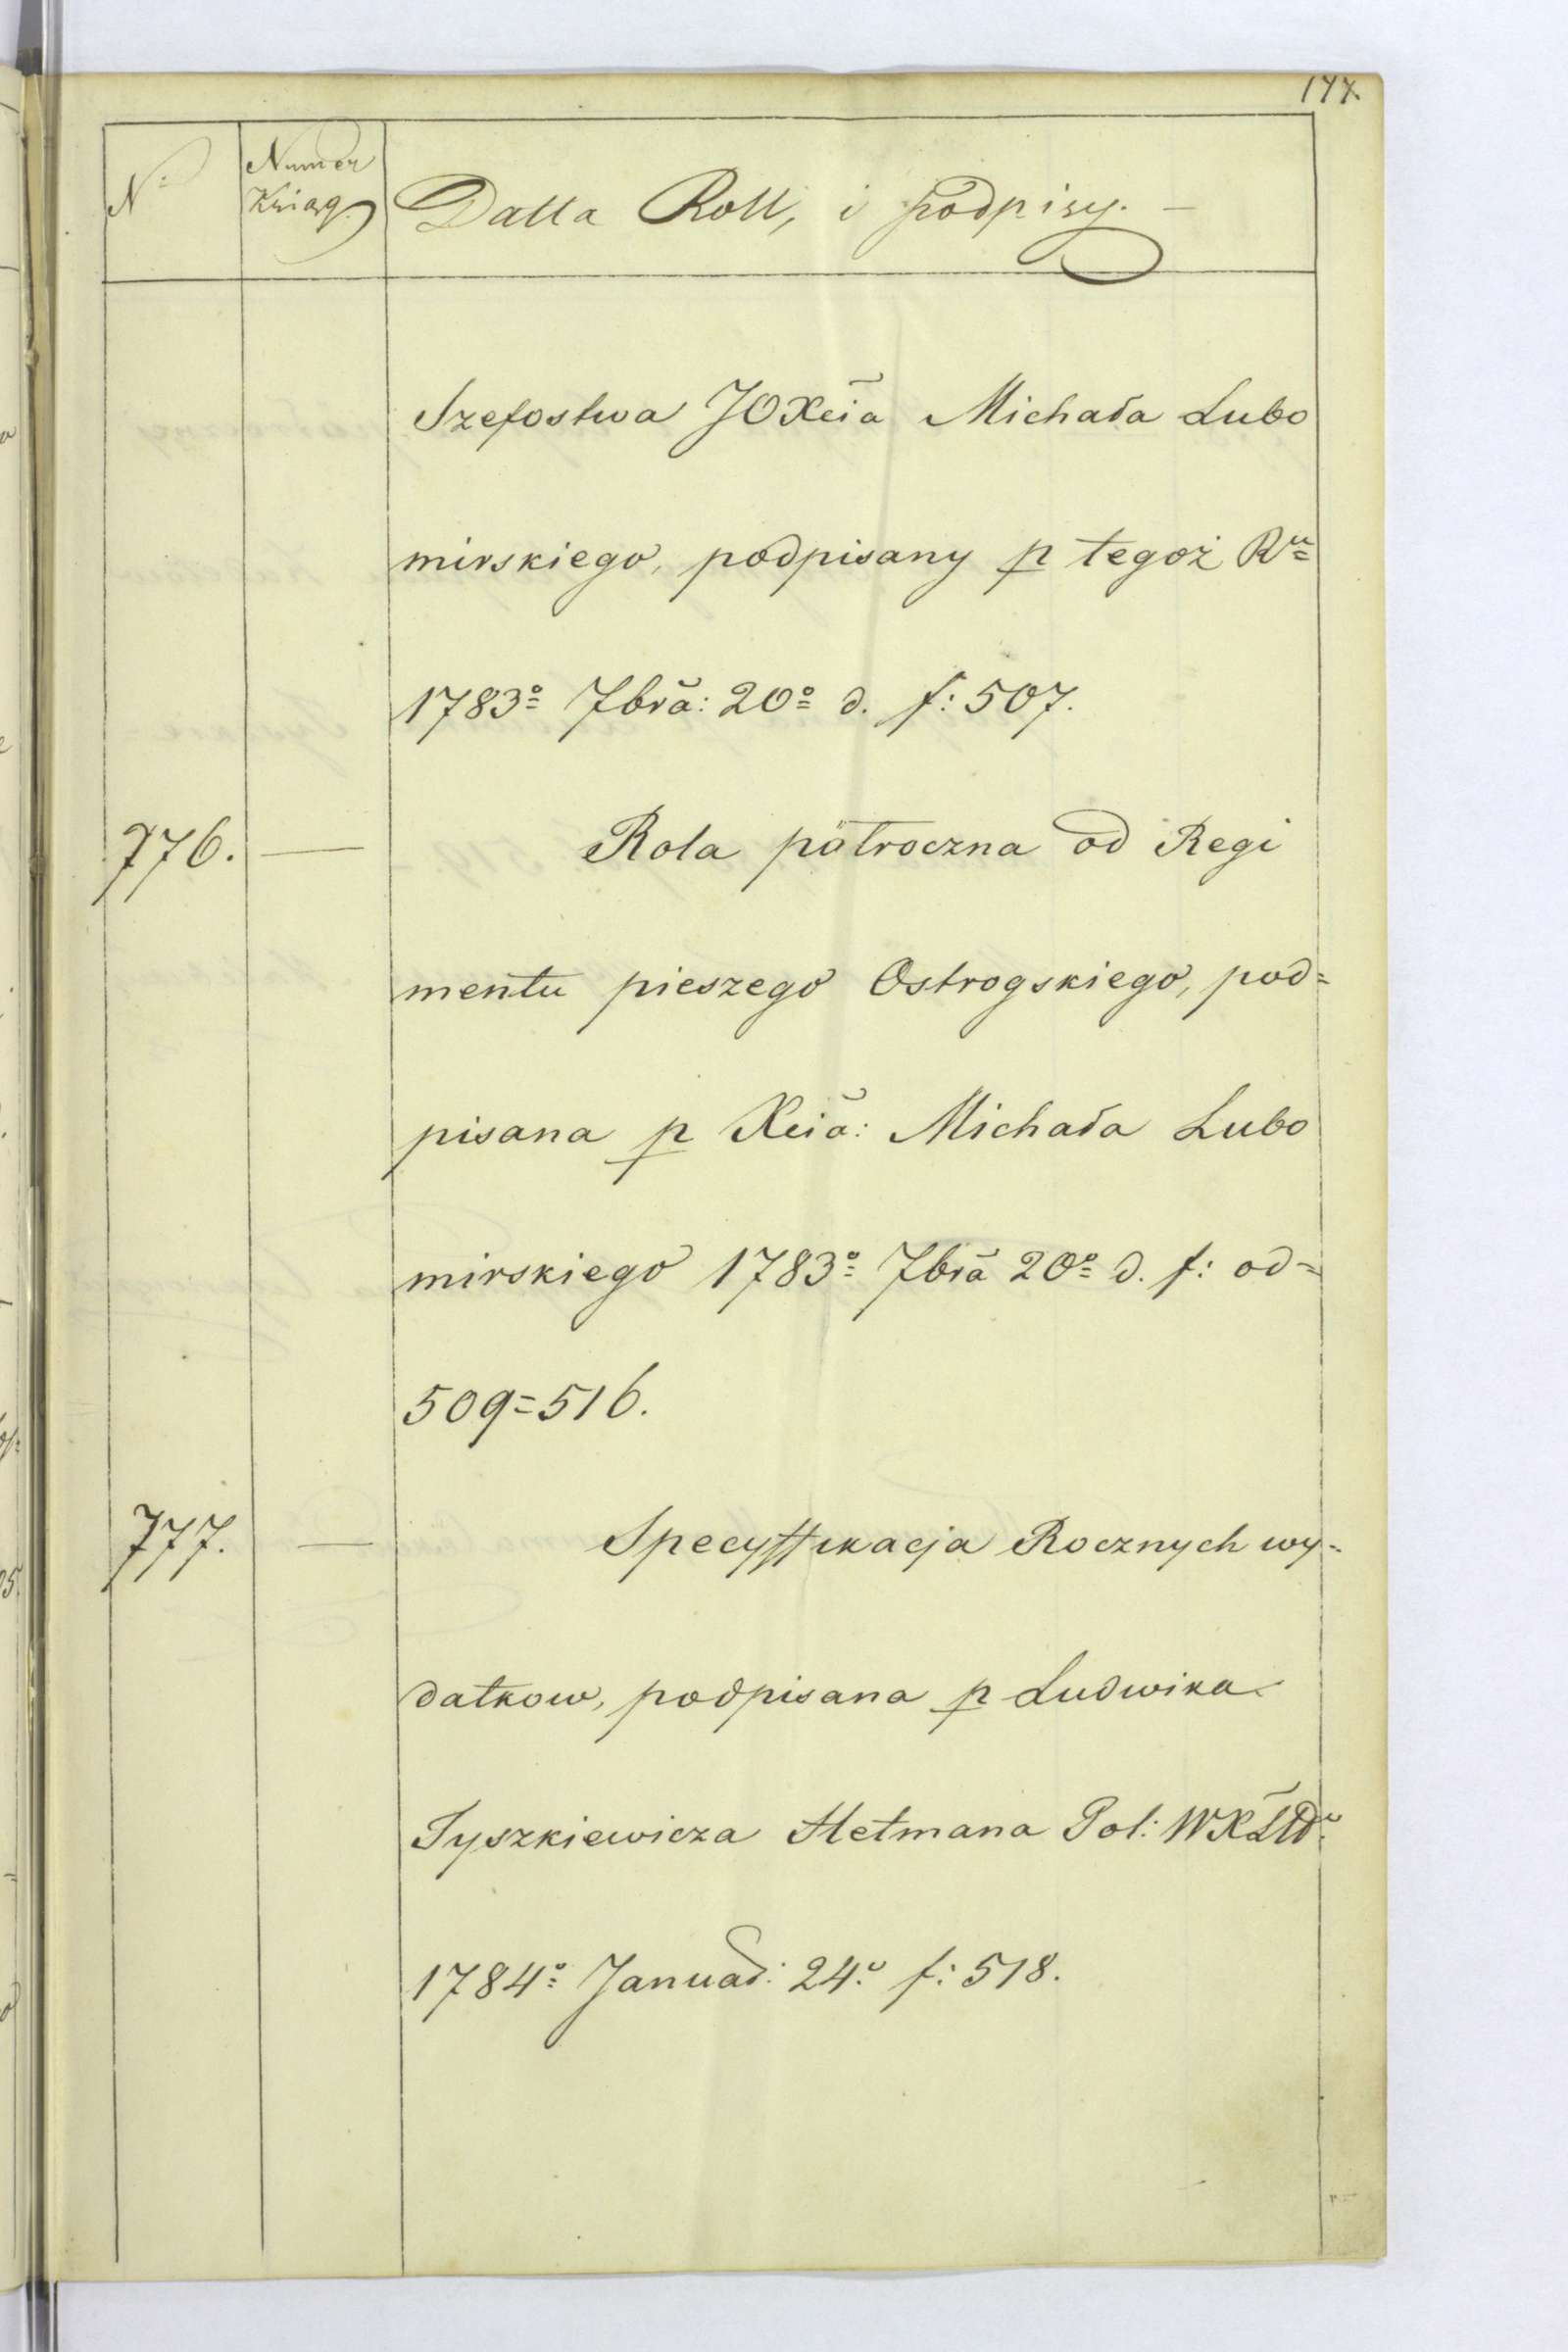 177.
N:
Numer
Książg.
Datta Roll, i podpisy. —
Szefostwa JOXcia Michała Lubo
mirskiego, podpisany p tegoż Ru
1783o 7bra: 20o d. f: 507.
776. — Rola połroczna od Regi
mentu pieszego Ostrogskiego, pod=
pisana p Xcia: Michała Lubo
mirskiego 1783o 7bra 20o d. f: od=
509=516.
777. — Specyffikacja Rocznych wy=
datkow, podpisana p Ludwika
Tyszkiewicza Hetmana Pol: WXLttd
1784o Januar: 24o f: 518.